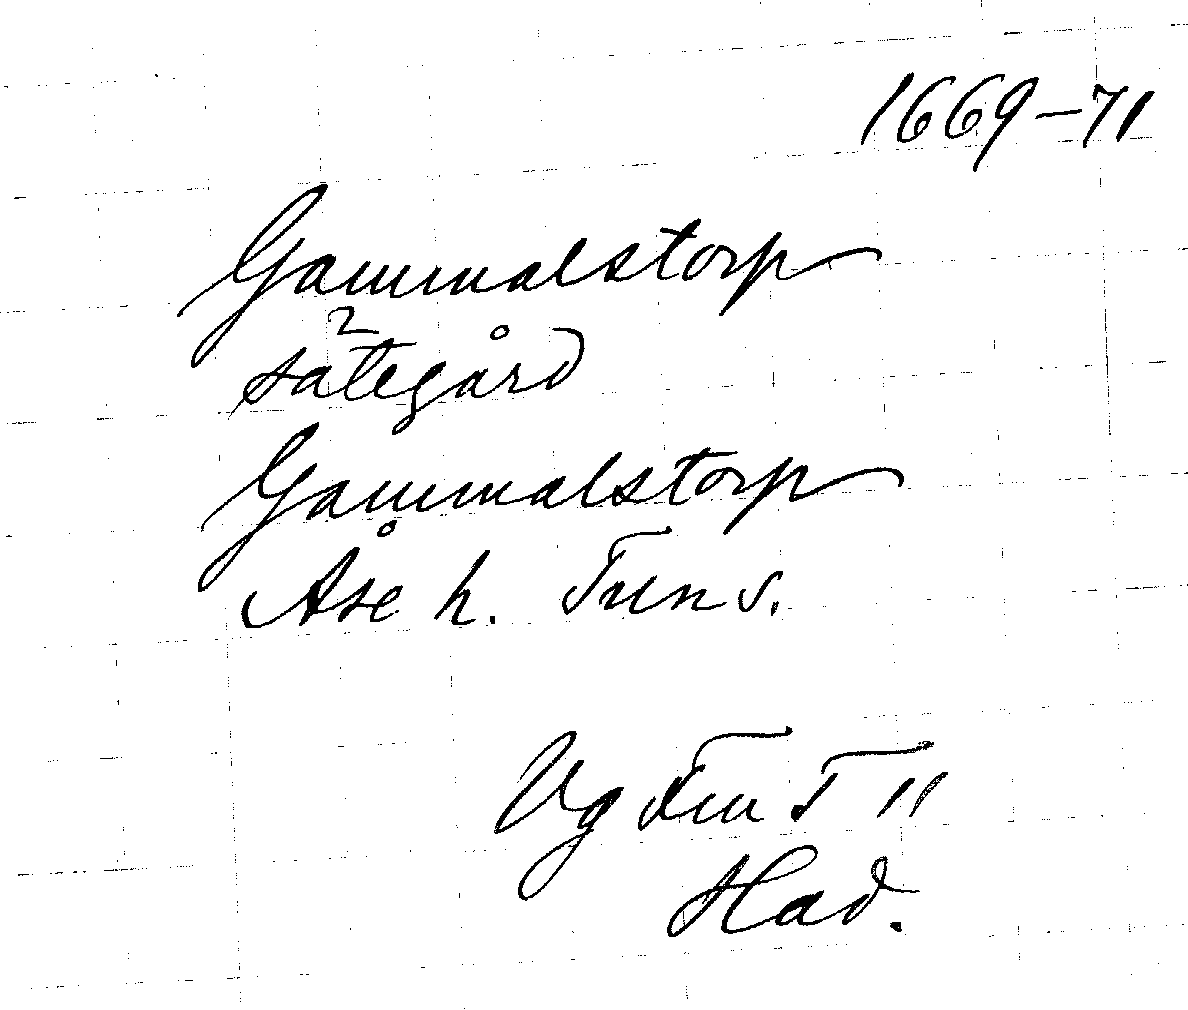 1669-71
Gammalstorp
sätegård
Gammalstorp
Åse h. Tun s.
Vg Tun T 11
Had.